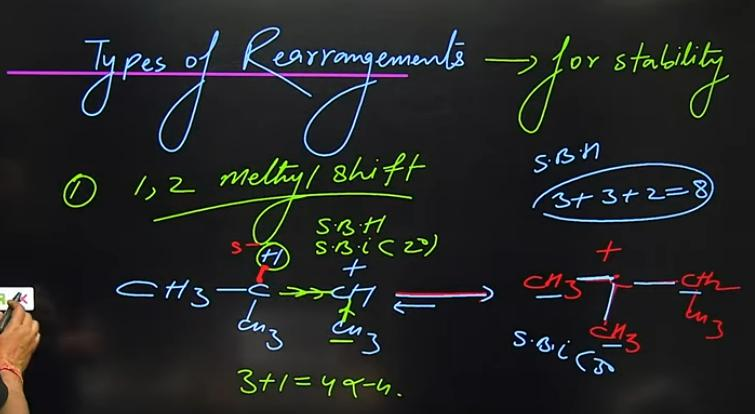 Types of Rearrangements → for stability
① 1,2 methyl shift
S.B.H
3+3+2=8
S.B.H
S.B.i (2°)
H
+
+
CH3 — C CH
CH3 — C — CH2
CH3
CH3
CH3
CH3
S.B.i (3°
3+1=4 α-H.